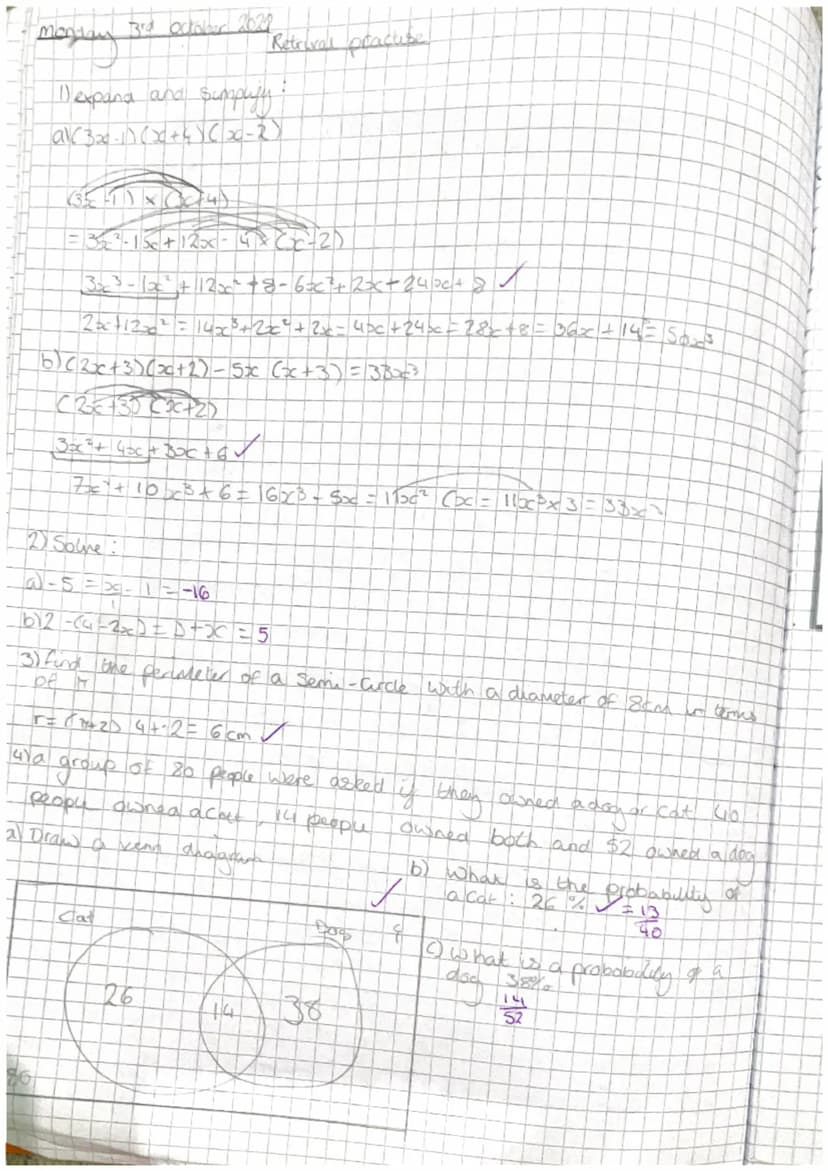 Monday 3rd October 2022
Retrieval practise
1) expand and simplify:
a) (3x-1)(x+4)(x-2)
(3x-1) × (x+4)
= 3x²-1x+12x-4 × (x-2)
3x³-1x²+12x²+8-6x²+2x+24x+8 ✓
2x+12x² = 14x³+2x²+2x = 4x+24x = 28x+8 = 36x+14 = 50x³
b) (2x+3)(x+2)-5x (x+3) = 33x³
(2x+3)(x+2)
3x²+4x+3x+6 ✓
7x²+10x³+6 = 16x³-5x = 11x² (x = 11x³×3 = 33x³
2) Solve:
a) -5 = x - 1 = -16
b) 2-(4-2x) = + x = 5
3) find the perimeter of a semi-circle with a diameter of 8cm in terms
of π
r = (π+2) 4+2 = 6cm ✓
4) a group of 80 people were asked if they owned a dog or cat 40
people owned a cat, 14 people owned both and 52 owned a dog
a) Draw a venn diagram
b) what is the probability of
a cat: 26% ✓ = 13/40
✓
Cat
Dog
26
14
38
c) what is a probability of a
dog 38%
14/52